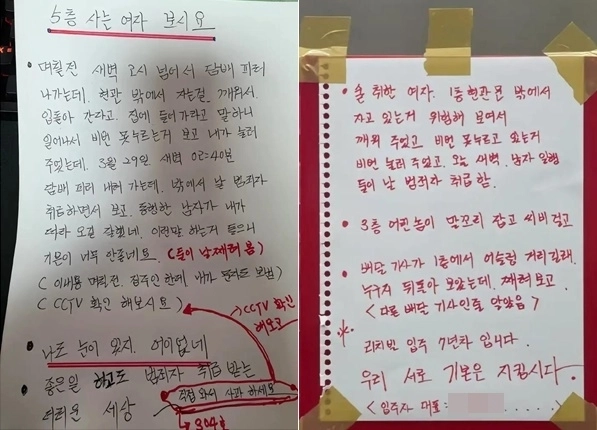 5층 사는 여자 보시요
• 며칠전 새벽 2시 넘어서 담배 피러
나가는데. 현관 밖에서 자는걸 깨워서.
입돌아 간다고. 집에 들어가라고 말하니
일어나서 비번 못누르는거 보고 내가 눌러
주었는데. 3월 29일 새벽 02:40분
담배 피러 내려 가는데. 밖에서 날 범죄자
취급하면서 보고. 동행한 남자가 내가
따라 오길 잘했네. 이런말 하는거 들으니
기분이 너무 안좋네요. (둘이 날 째려 봄)
( 이내용 며칠전. 집주인 한데 내가 문자도 보냄)
( CCTV 확인 해보시요 )
CCTV 확인
해보고
• 나도 눈이 있지. 어이없네
좋은일 하고도 범죄자 취급 받는
더러운 세상
직접 와서 사과 하세요
→ 304호
• 술 취한 여자. 1층현관문 밖에서
자고 있는거 위험해 보여서
깨워 주었고 비번 못누르고 있는거
비번 눌러 주었고. 오늘 새벽. 남자 일행
둘이 날 범죄자 취급함.
• 3층 어린놈이 말꼬리 잡고 씨비 걸고
• 배달 기사가 1층에서 어슬렁 거리길래.
누구지 뒤돌아 보았는데. 째려보고
< 다른 배달 기사인줄 알았음 >
※ 리치빌 입주 7년차 입니다.
우리 서로 기본은 지킵시다.
< 입주자 대표: